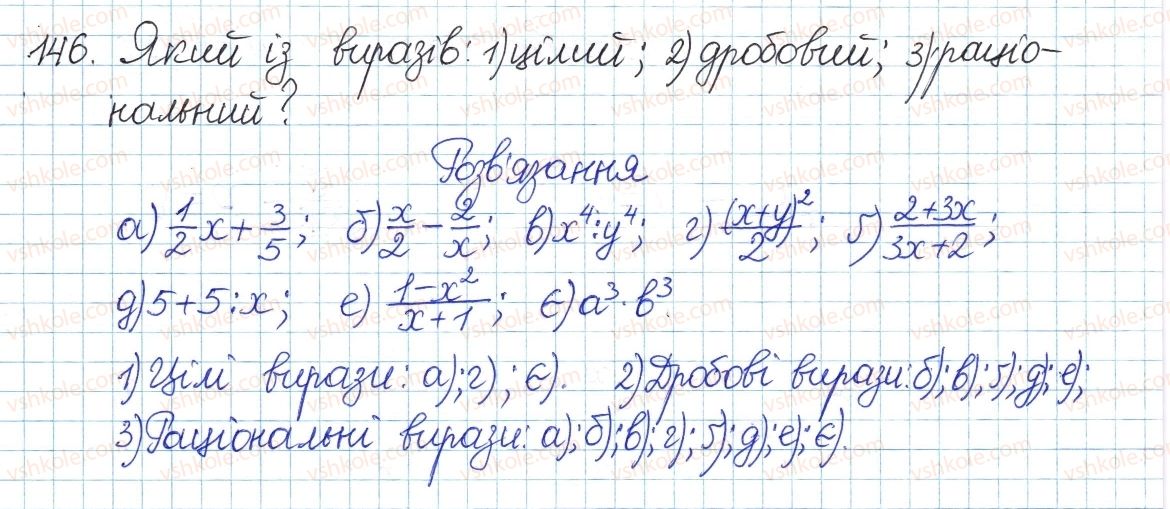 146. Який із виразів: 1) цілий; 2) дробовий; 3) раціо-
нальний?
Розв'язання
а) 1/2 x + 3/5; б) x/2 − 2/x; в) x⁴ : y⁴; г) (x+y)²/2; ґ) 2+3x/3x+2;
д) 5+5:x; е) 1−x²/x+1; є) a³ · b³.
1) Цілі вирази: а); г); є). 2) Дробові вирази: б); в); ґ); д); е);
3) Раціональні вирази: а); б); в); г); ґ); д); е); є).